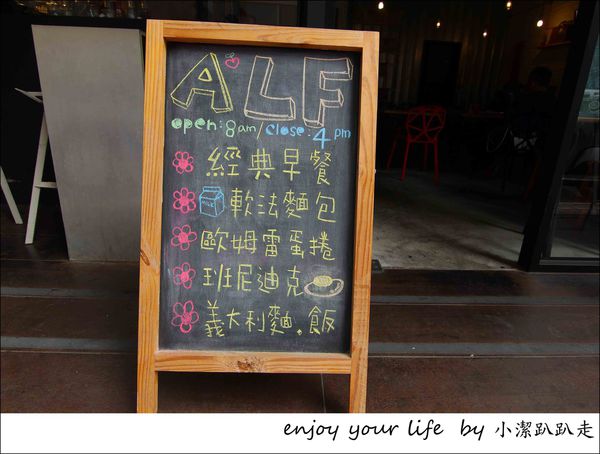 ALF
open:8am/close:4pm
經典早餐
軟法麵包
歐姆雷蛋捲
班尼迪克
義大利麵.飯
enjoy your life by 小潔趴趴走